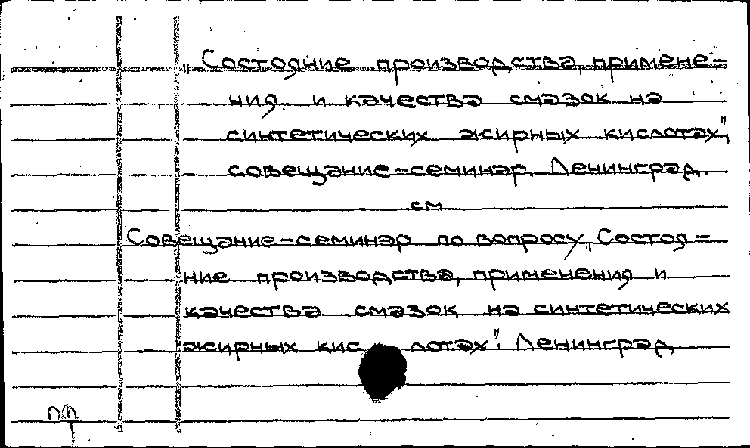 „Состояние производства, примене-
ния и качества смазок на
синтетических жирных кислотах",
совещание-семинар, Ленинград.
см
Совещание-семинар по вопросу „Состоя-
ние производства, применения и
качества смазок на синтетических
жирных кислотах". Ленинград